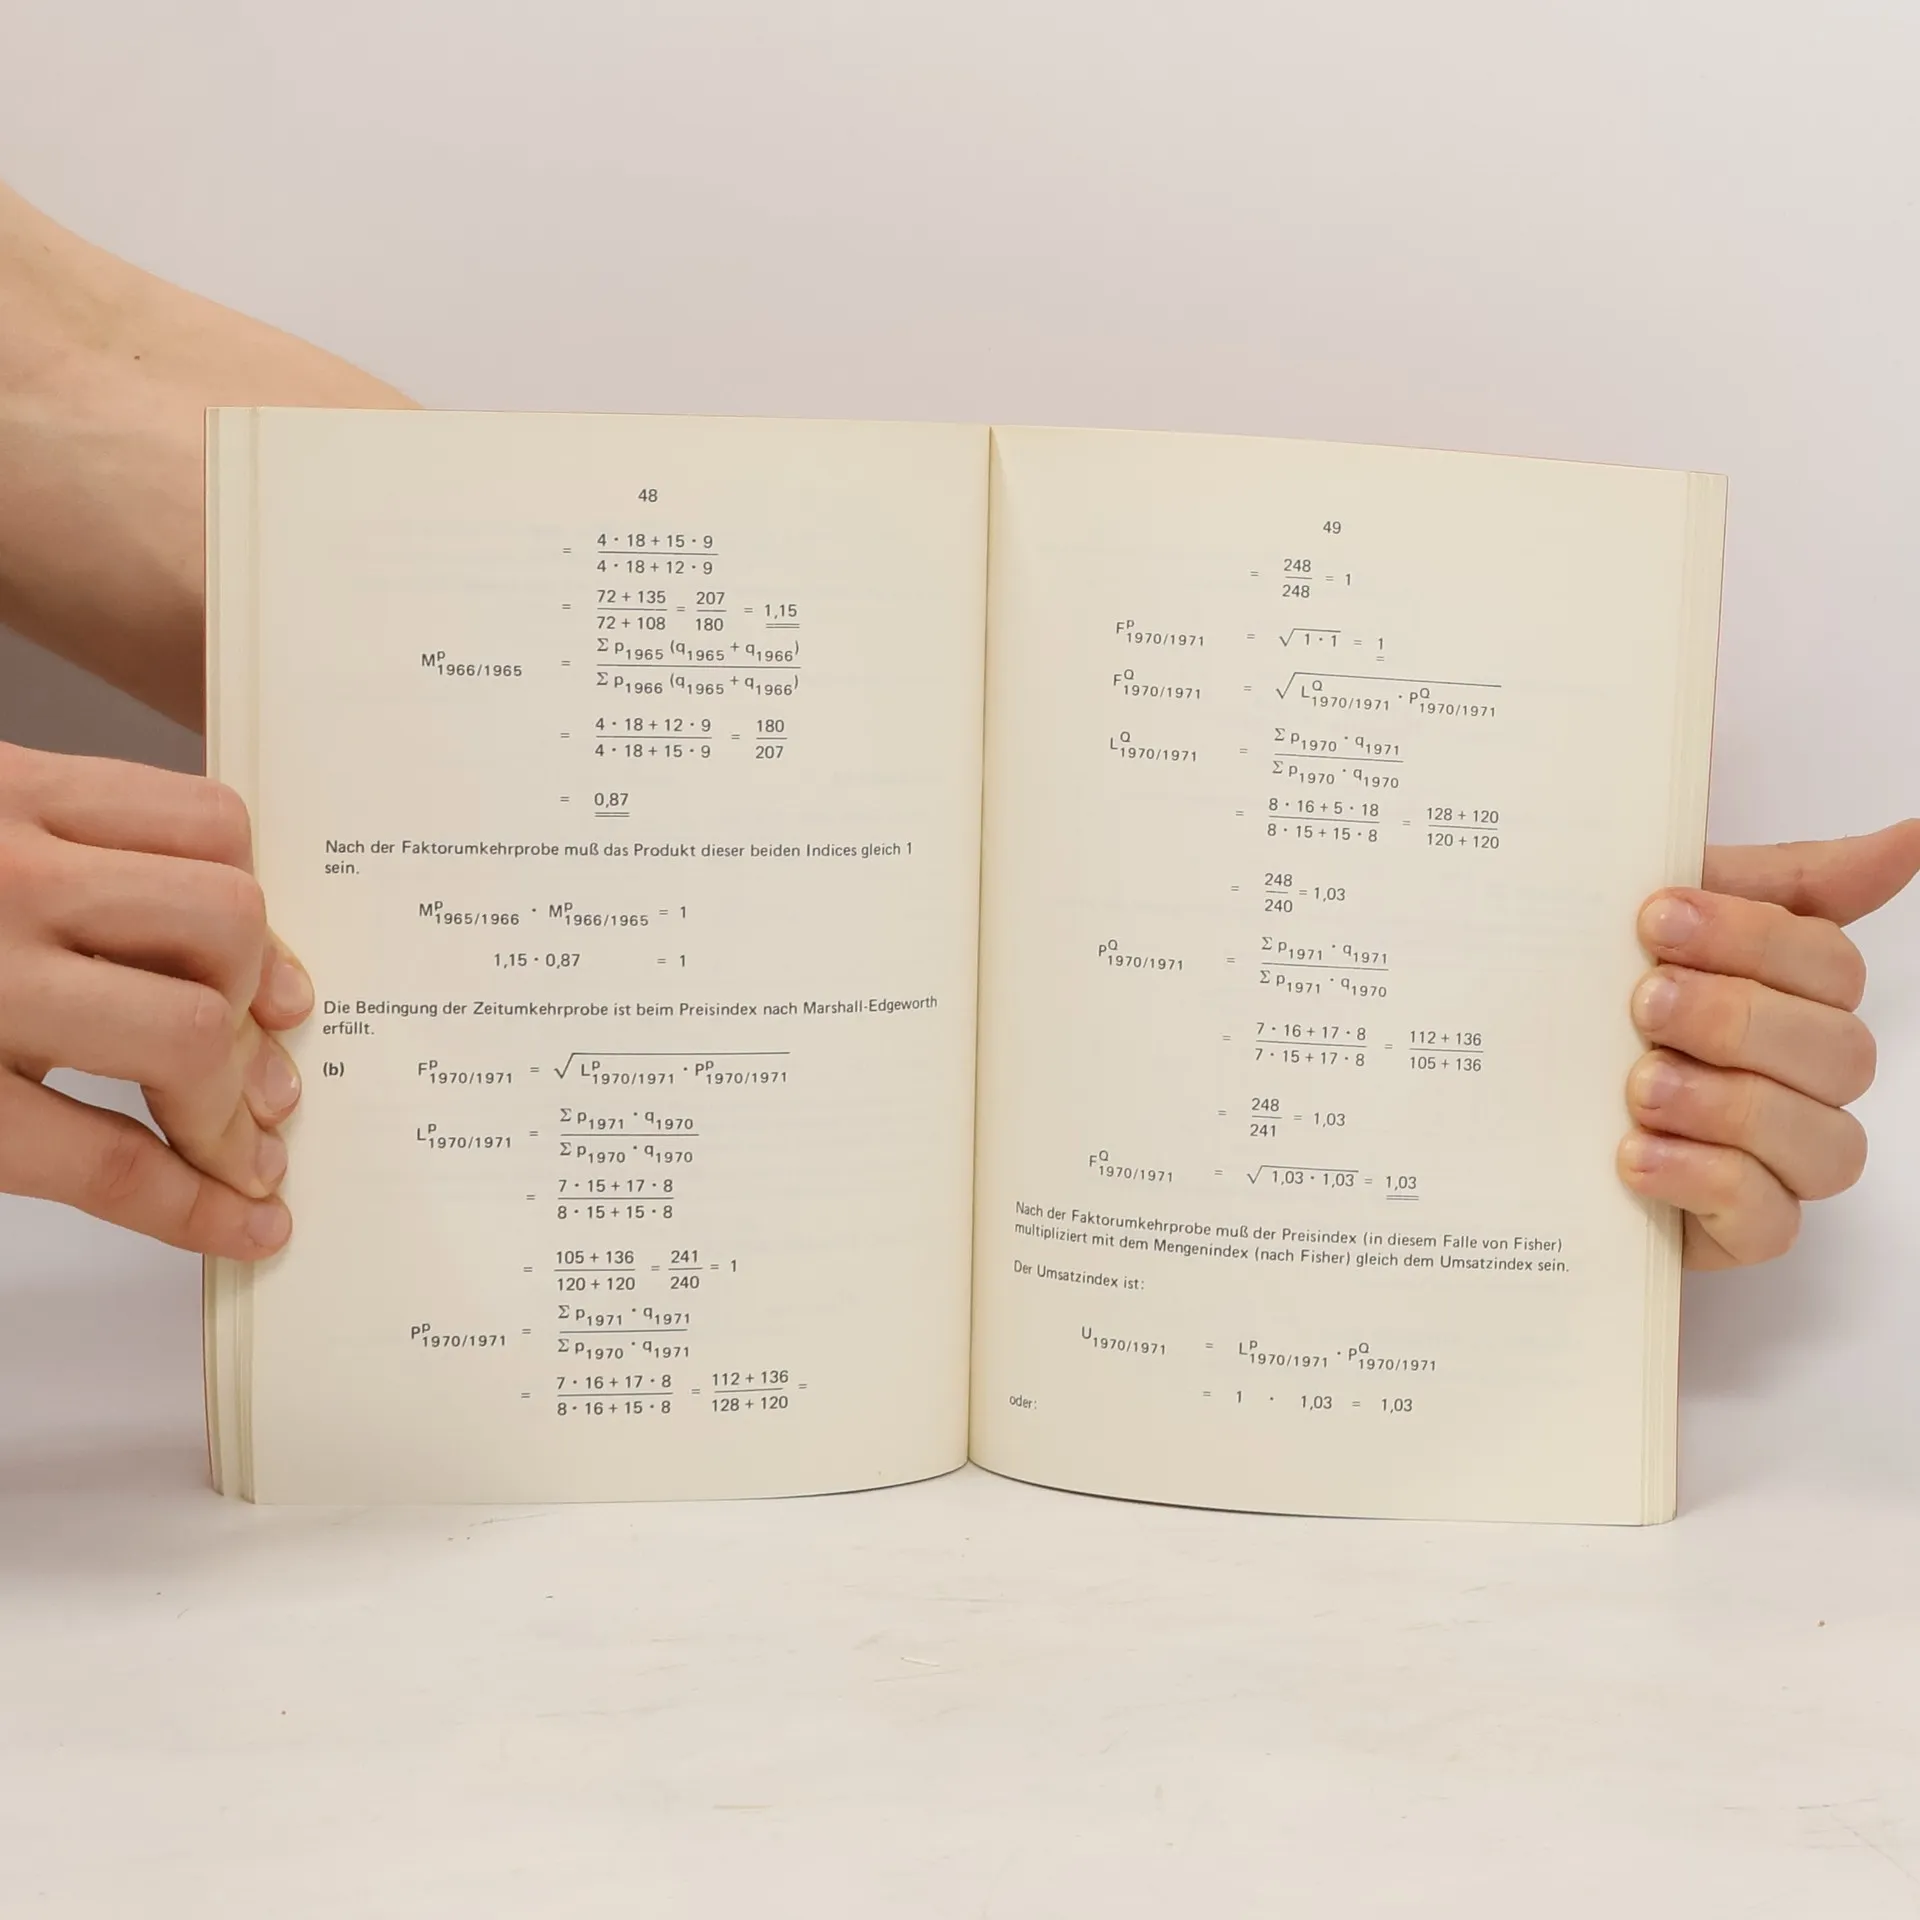 48
= (4 · 18 + 15 · 9) / (4 · 18 + 12 · 9)
= (72 + 135) / (72 + 108) = 207 / 180 = 1,15
M^P_1966/1965 = Σ p_1965 (q_1965 + q_1966) / Σ p_1966 (q_1965 + q_1966)
= (4 · 18 + 12 · 9) / (4 · 18 + 15 · 9) = 180 / 207
= 0,87
Nach der Faktorumkehrprobe muß das Produkt dieser beiden Indices gleich 1
sein.
M^P_1965/1966 · M^P_1966/1965 = 1
1,15 · 0,87 = 1
Die Bedingung der Zeitumkehrprobe ist beim Preisindex nach Marshall-Edgeworth
erfüllt.
(b) F^P_1970/1971 = √(L^P_1970/1971 · P^P_1970/1971)
L^P_1970/1971 = Σ p_1971 · q_1970 / Σ p_1970 · q_1970
= (7 · 15 + 17 · 8) / (8 · 15 + 15 · 8)
= (105 + 136) / (120 + 120) = 241 / 240 = 1
P^P_1970/1971 = Σ p_1971 · q_1971 / Σ p_1970 · q_1971
= (7 · 16 + 17 · 8) / (8 · 16 + 15 · 8) = (112 + 136) / (128 + 120) =
49
= 248 / 248 = 1
F^P_1970/1971 = √(1 · 1) = 1
F^Q_1970/1971 = √(L^Q_1970/1971 · P^Q_1970/1971)
L^Q_1970/1971 = Σ p_1970 · q_1971 / Σ p_1970 · q_1970
= (8 · 16 + 5 · 18) / (8 · 15 + 15 · 8) = (128 + 120) / (120 + 120)
= 248 / 240 = 1,03
P^Q_1970/1971 = Σ p_1971 · q_1971 / Σ p_1971 · q_1970
= (7 · 16 + 17 · 8) / (7 · 15 + 17 · 8) = (112 + 136) / (105 + 136)
= 248 / 241 = 1,03
F^Q_1970/1971 = √(1,03 · 1,03) = 1,03
Nach der Faktorumkehrprobe muß der Preisindex (in diesem Falle von Fisher)
multipliziert mit dem Mengenindex (nach Fisher) gleich dem Umsatzindex sein.
Der Umsatzindex ist:
U_1970/1971 = L^P_1970/1971 · P^Q_1970/1971
= 1 · 1,03 = 1,03
oder: